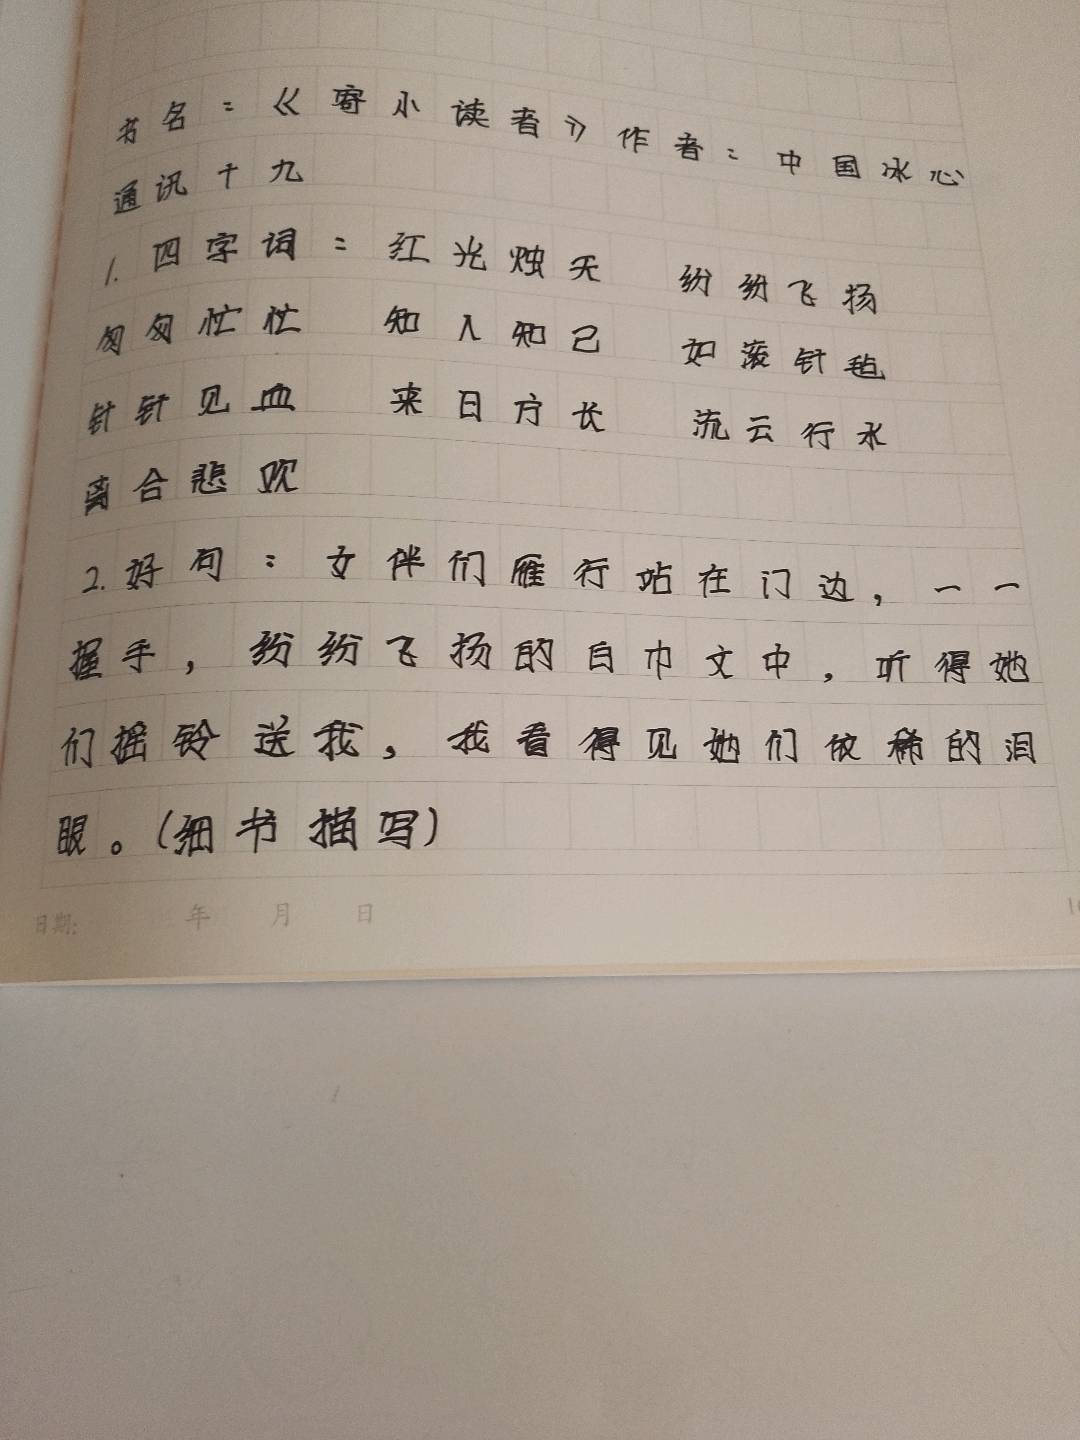 书名：《寄小读者》作者：中国冰心
通讯十九
1.四字词：红光烛天 纷纷飞扬
匆匆忙忙 知人知己 如滚针毡
针针见血 来日方长 流云行水
离合悲欢
2.好句：女伴们雁行站在门边，一一
握手，纷纷飞扬的白巾文中，听得她
们摇铃送我，我看得见她们依稀的泪
眼。（细书描写）
日期： 年 月 日